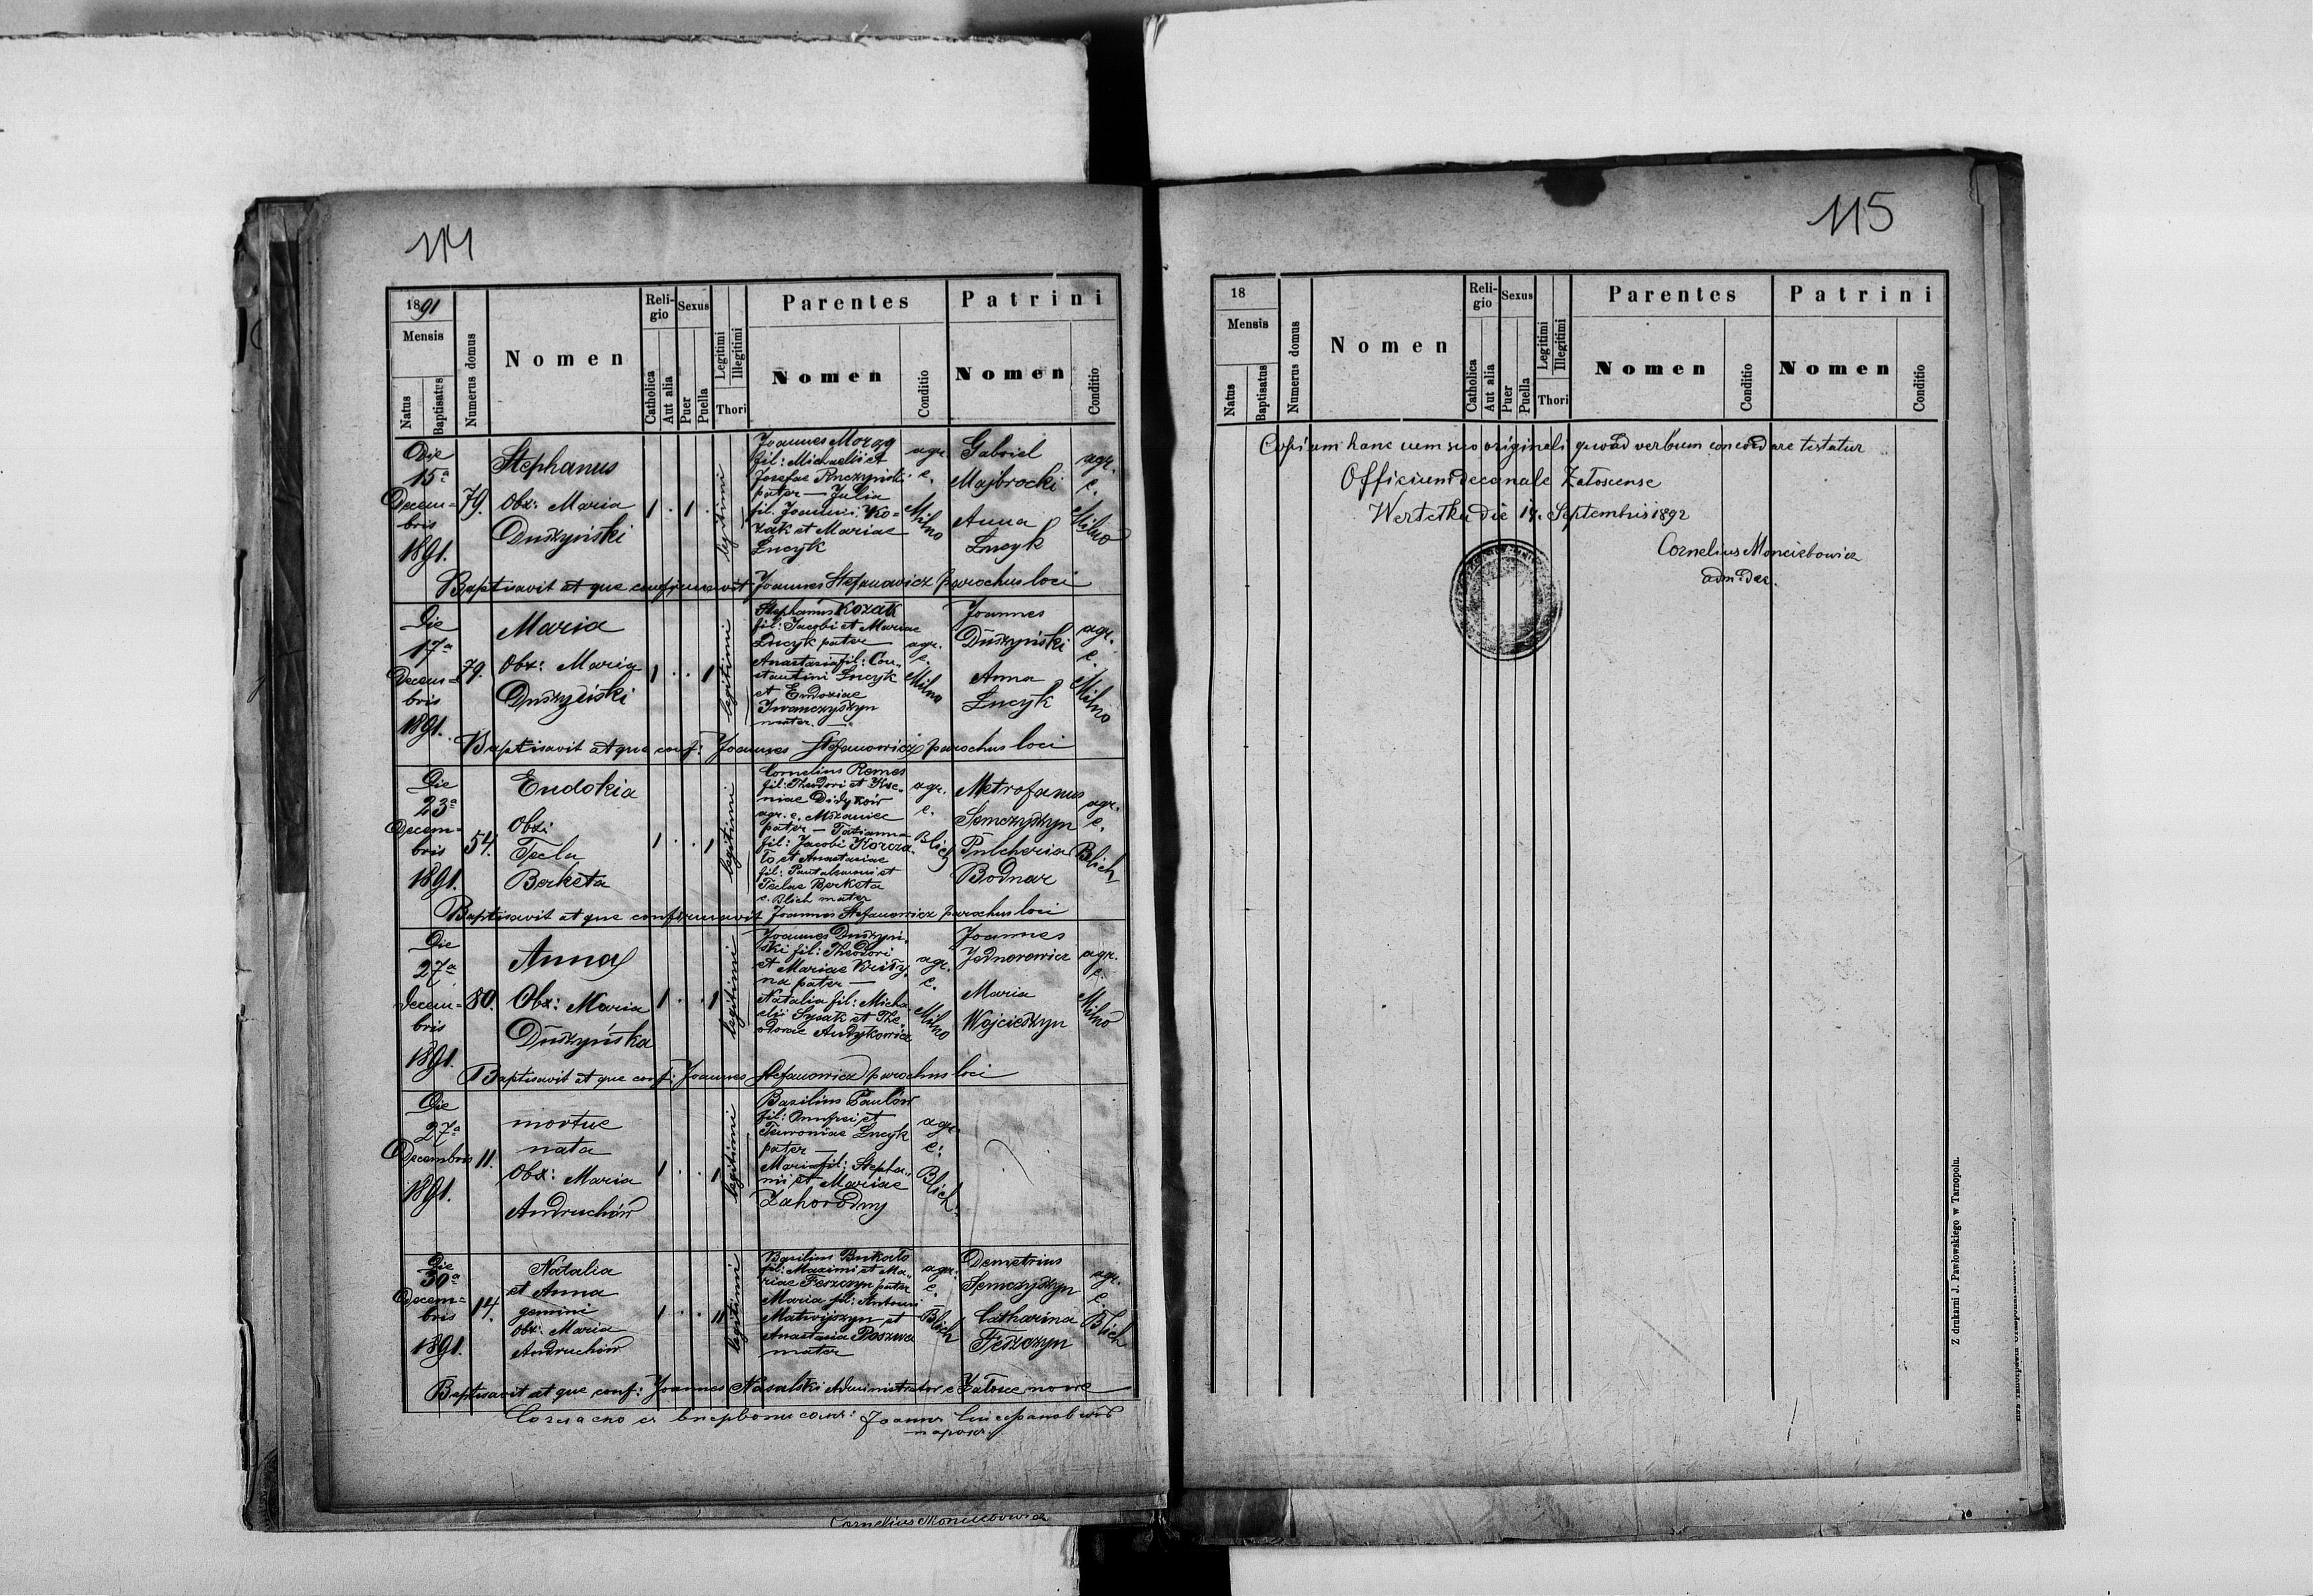 114
1891
Mensis
Natus
Baptisatus
Numerus domus
Nomen
Religio
Catholica
Aut alia
Sexus
Puer
Puella
Legitimi
Illegitimi
Thori
Parentes
Nomen
Conditio
Patrini
Nomen
Conditio
Die
15a
Decem=
bris
1891.
79.
Stephanus
Obx: Maria
Duszyński
1 . 1 .
legitimi
Joannes
fil: Michaelis et
Josefae
pater — Julia
fil. Joannis Ko=
zak et Mariae
Łucyk
agr.
c.
Milno
Gabriel
Majbrocki
Anna
Łucyk
agr.
c.
Milno
Baptisavit at que confirmavit Joannes Stefanowicz parochus loci
Die
17a
Decem=
bris
1891.
79.
Maria
Obx: Maria
Duszyński
1 . . 1
legitimi
Stephanus Kozak
fil: Jacobi et Mariae
Łucyk pater —
Anastasia fil: Con„
stantini Łucyk
et Eudoxiae
Iwanczyszyn
mater. —
agr.
c.
Milno
Joannes
Duszyński
Anna
Łucyk
agr.
c.
Milno
Baptisavit at que conf: Joannes Stefanowicz parochus loci
Die
23a
Decem=
bris
1891.
54.
Eudokia
Obx:
Tecla
Berketa
1 . . 1
legitimi
Cornelius Remes
fil: Theodori et Xe„
niae Didyków
agr. c. Mszaniec
pater — Tatianna
fil: Jacobi
to et Anastasiae
fil: Pantaleonis et
Teclae Berketa
c. Blich mater
agr.
c.
Blich
Metrofanus
Semczyszyn
Pulcheria
Bodnar
agr.
c.
Blich
Baptisavit at que confirmavit Joannes Stefanowicz parochus loci
Die
27a
Decem=
bris
1891.
80.
Anna
Obx: Maria
Duszyńska
1 . . 1
legitimi
Joannes Duszyń„
ski fil: Theodori
et Mariae
na pater —
Natalia fil: Micha
elis Sysak et The„
odorae Andykowicz
agr.
c.
Milno
Joannes
Jednorowicz
Maria
Wojcieszyn
agr.
c.
Milno
Baptisavit at que conf: Joannes Stefanowicz parochus loci
Die
27a
Decembris
1891.
11.
mortue
nata
Obx: Maria
Andruchów
1 . . 1
legitimi
Basilius Pawlów
fil: Onufrei et
Łucyk
pater —
Maria fil: Stepha„
nis et Mariae
Zahorodny
agr.
c.
Blich.
Die
30a
Decem=
bris
1891.
14.
Natalia
et Anna
gemini
Obx: Maria
Andruchów
1 . . 11
legitimi
Basilius Bukarło
fil: Maximi et Ma„
riae Feszczyn pater
Maria fil: Antonii
Matwijszyn et
Anastasia
mater
agr.
c.
Blich
Demetrius
Semczyszyn
Catharina
Feszczyn
agr.
c.
Blich
Baptisavit at que conf: Joannes Nasalski Administrator c Załosce nowe
Cornelius Monciebowicz
115
18
Mensis
Natus
Baptisatus
Numerus domus
Nomen
Religio
Catholica
Aut alia
Sexus
Puer
Puella
Legitimi
Illegitimi
Thori
Parentes
Nomen
Conditio
Patrini
Nomen
Conditio
Copiam hanc cum suo originali quoad verbum concordare testatur
Officium decanale Załoscense
Wertelka die 14. Septembris 1892
Cornelius Monciebowicz
adm. dec.
Z drukarni J. Pawłowskiego w Tarnopolu.